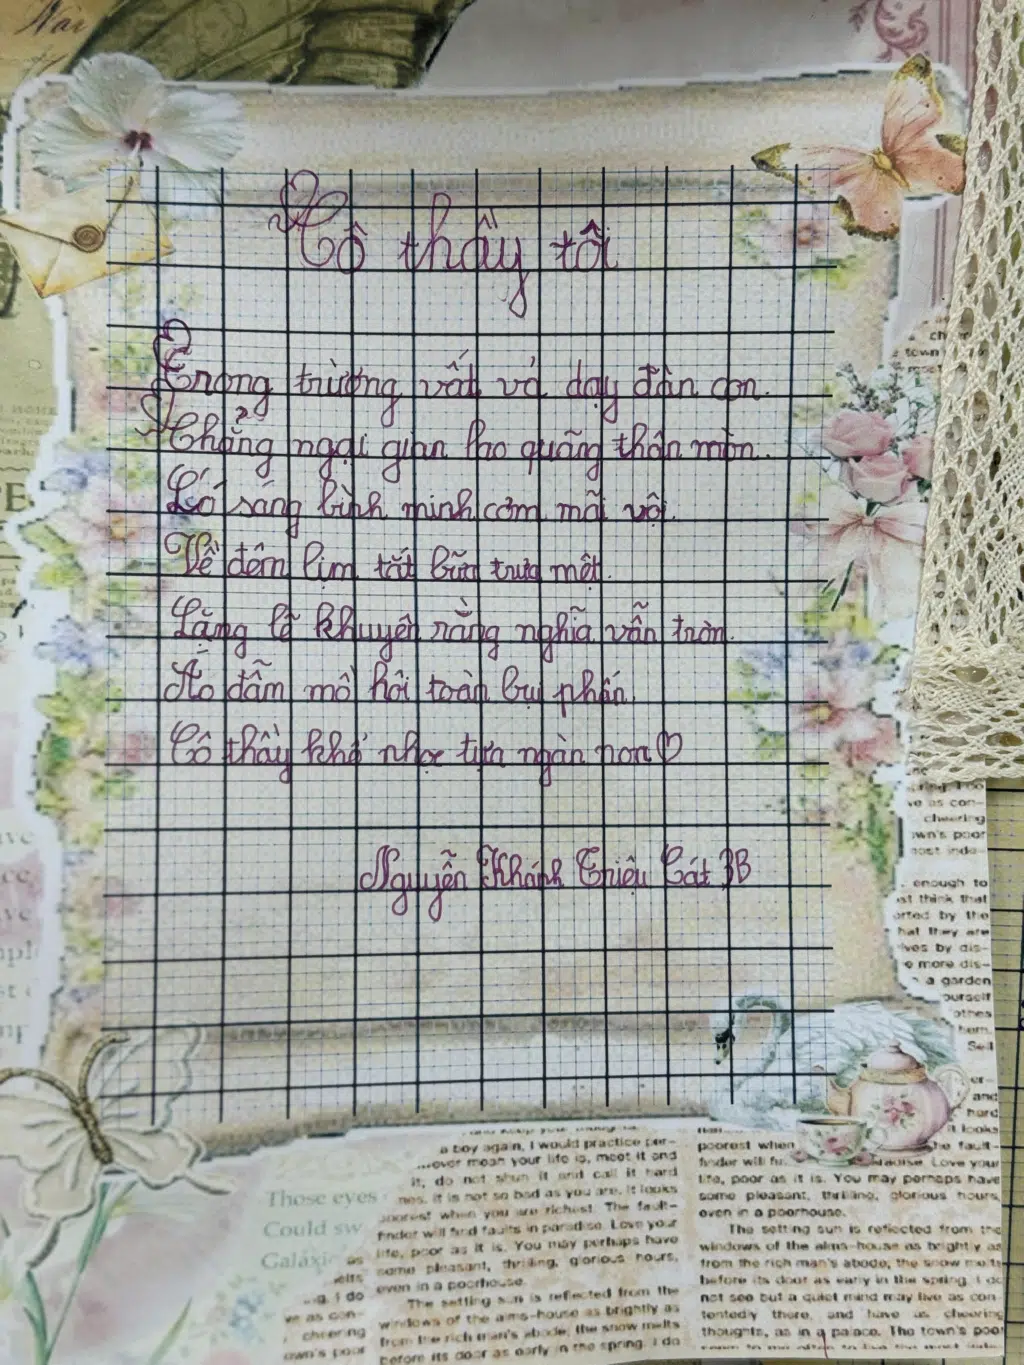 Cô thầy tôi
Trong trường vất vả dạy đàn con.
Chẳng ngại gian lao quãng thân mòn.
Ló sáng bình minh cơm mãi vội.
Về đêm lịm tắt bữa trưa mệt.
Lặng lẽ khuyên rằng nghĩa vẫn tròn.
Áo đẫm mồ hôi toàn bụi phấn.
Cô thầy khổ nhọc tựa ngàn non♡
Nguyễn Khánh Thiệu Cát 3B
cheering
town's poor
enough to
think that
by the
that they are
by dis-
more dis-
a garden
yourself
Sell
and
hard
it looks
Those eyes
Could sw
Galaxie
a boy again, I would practice per-
mean your life is, meet it and
it, do not shun it and call it hard
It is not so bad as you are. It looks
poorest when you are richest. The fault-
finder will find faults in paradise. Love your
life, poor as it is. You may perhaps have
some pleasant, thrilling, glorious hours,
even in a poorhouse.
The setting sun is reflected from the
windows of the alms-house as brightly as
from the rich man's abode; the snow melts
before its door as early in the spring. I do
poorest when
the fault-
finder will
paradise. Love your
life, poor as it is. You may perhaps have
some pleasant, thrilling, glorious hours,
even in a poorhouse.
The setting sun is reflected from the
windows of the alms-house as brightly as
from the rich man's abode; the snow melts
before its door as early in the spring. I do
not see but a quiet mind may live as con-
tentedly there, and have as cheering
thoughts, as in a palace. The town's poor